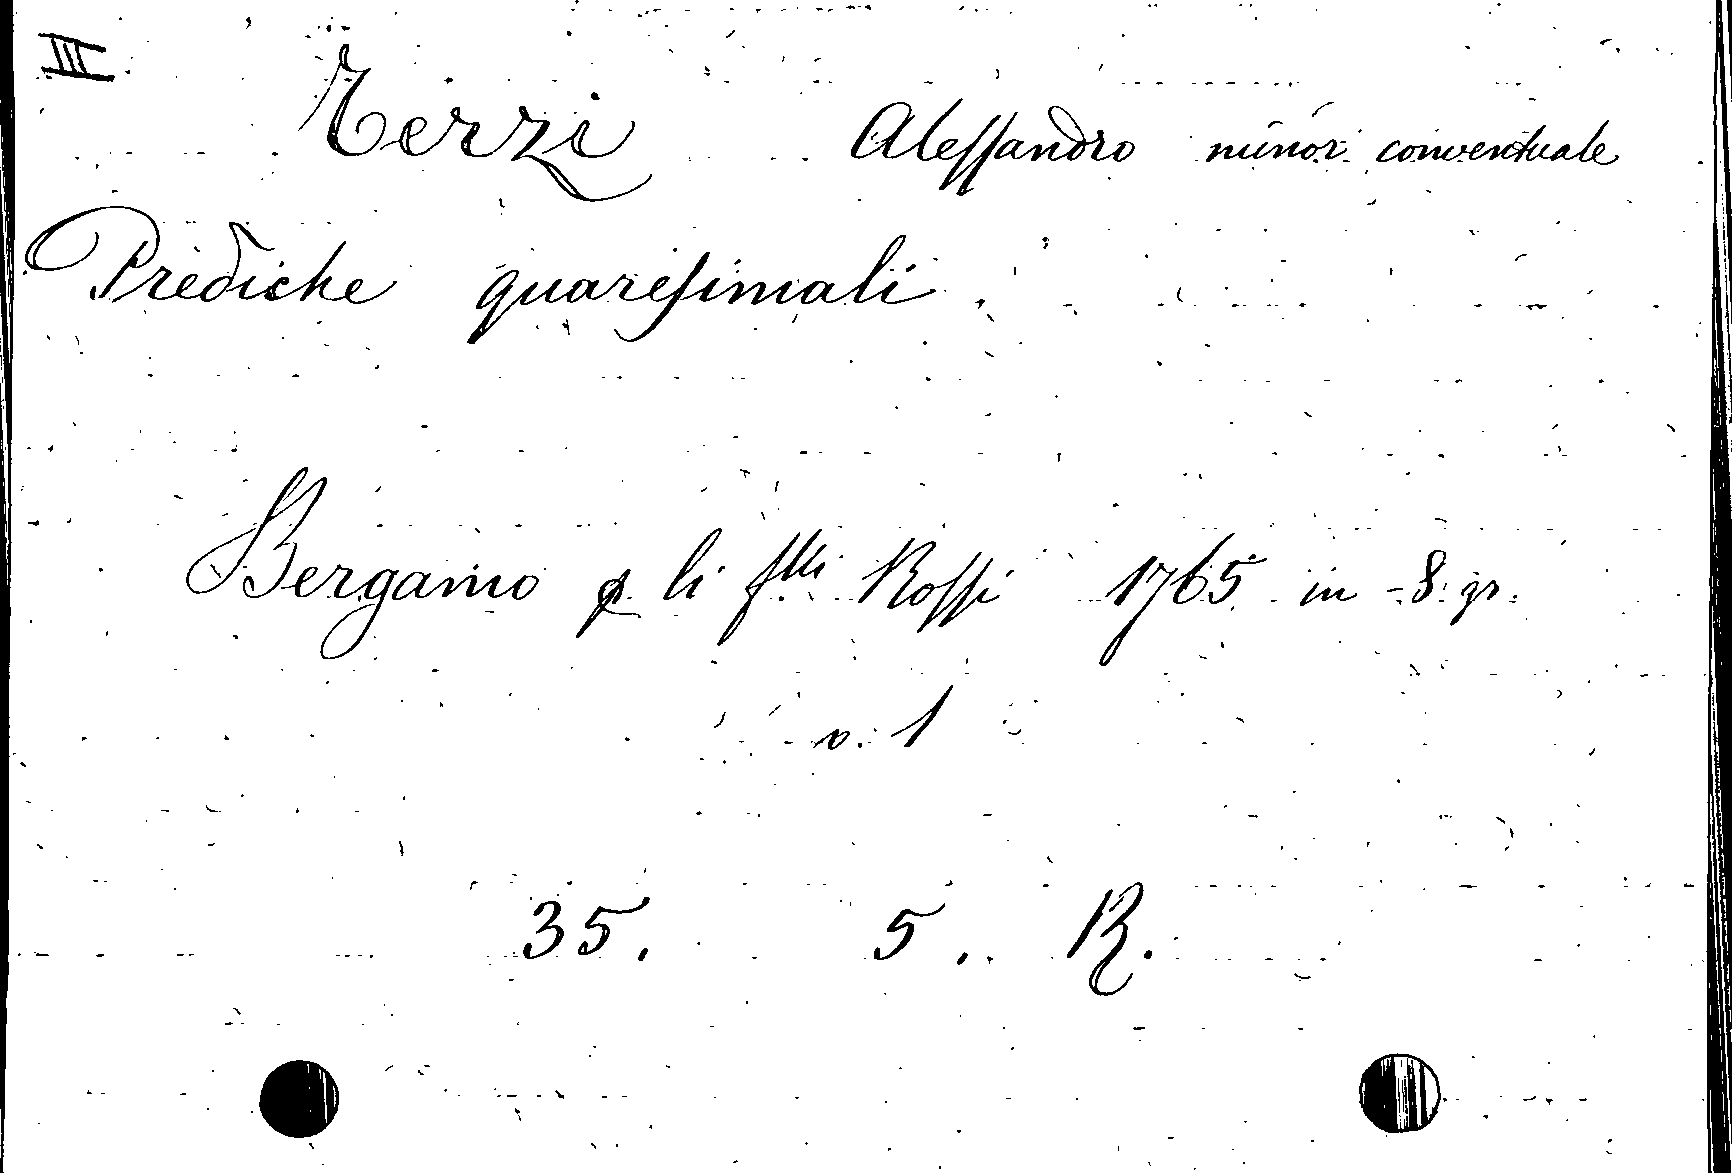 III
Terzi Alessandro minor conventuale
Prediche quaresimali
Bergamo p li flli Rossi 1765 in-8. gr.
v. 1
35. 5. R.